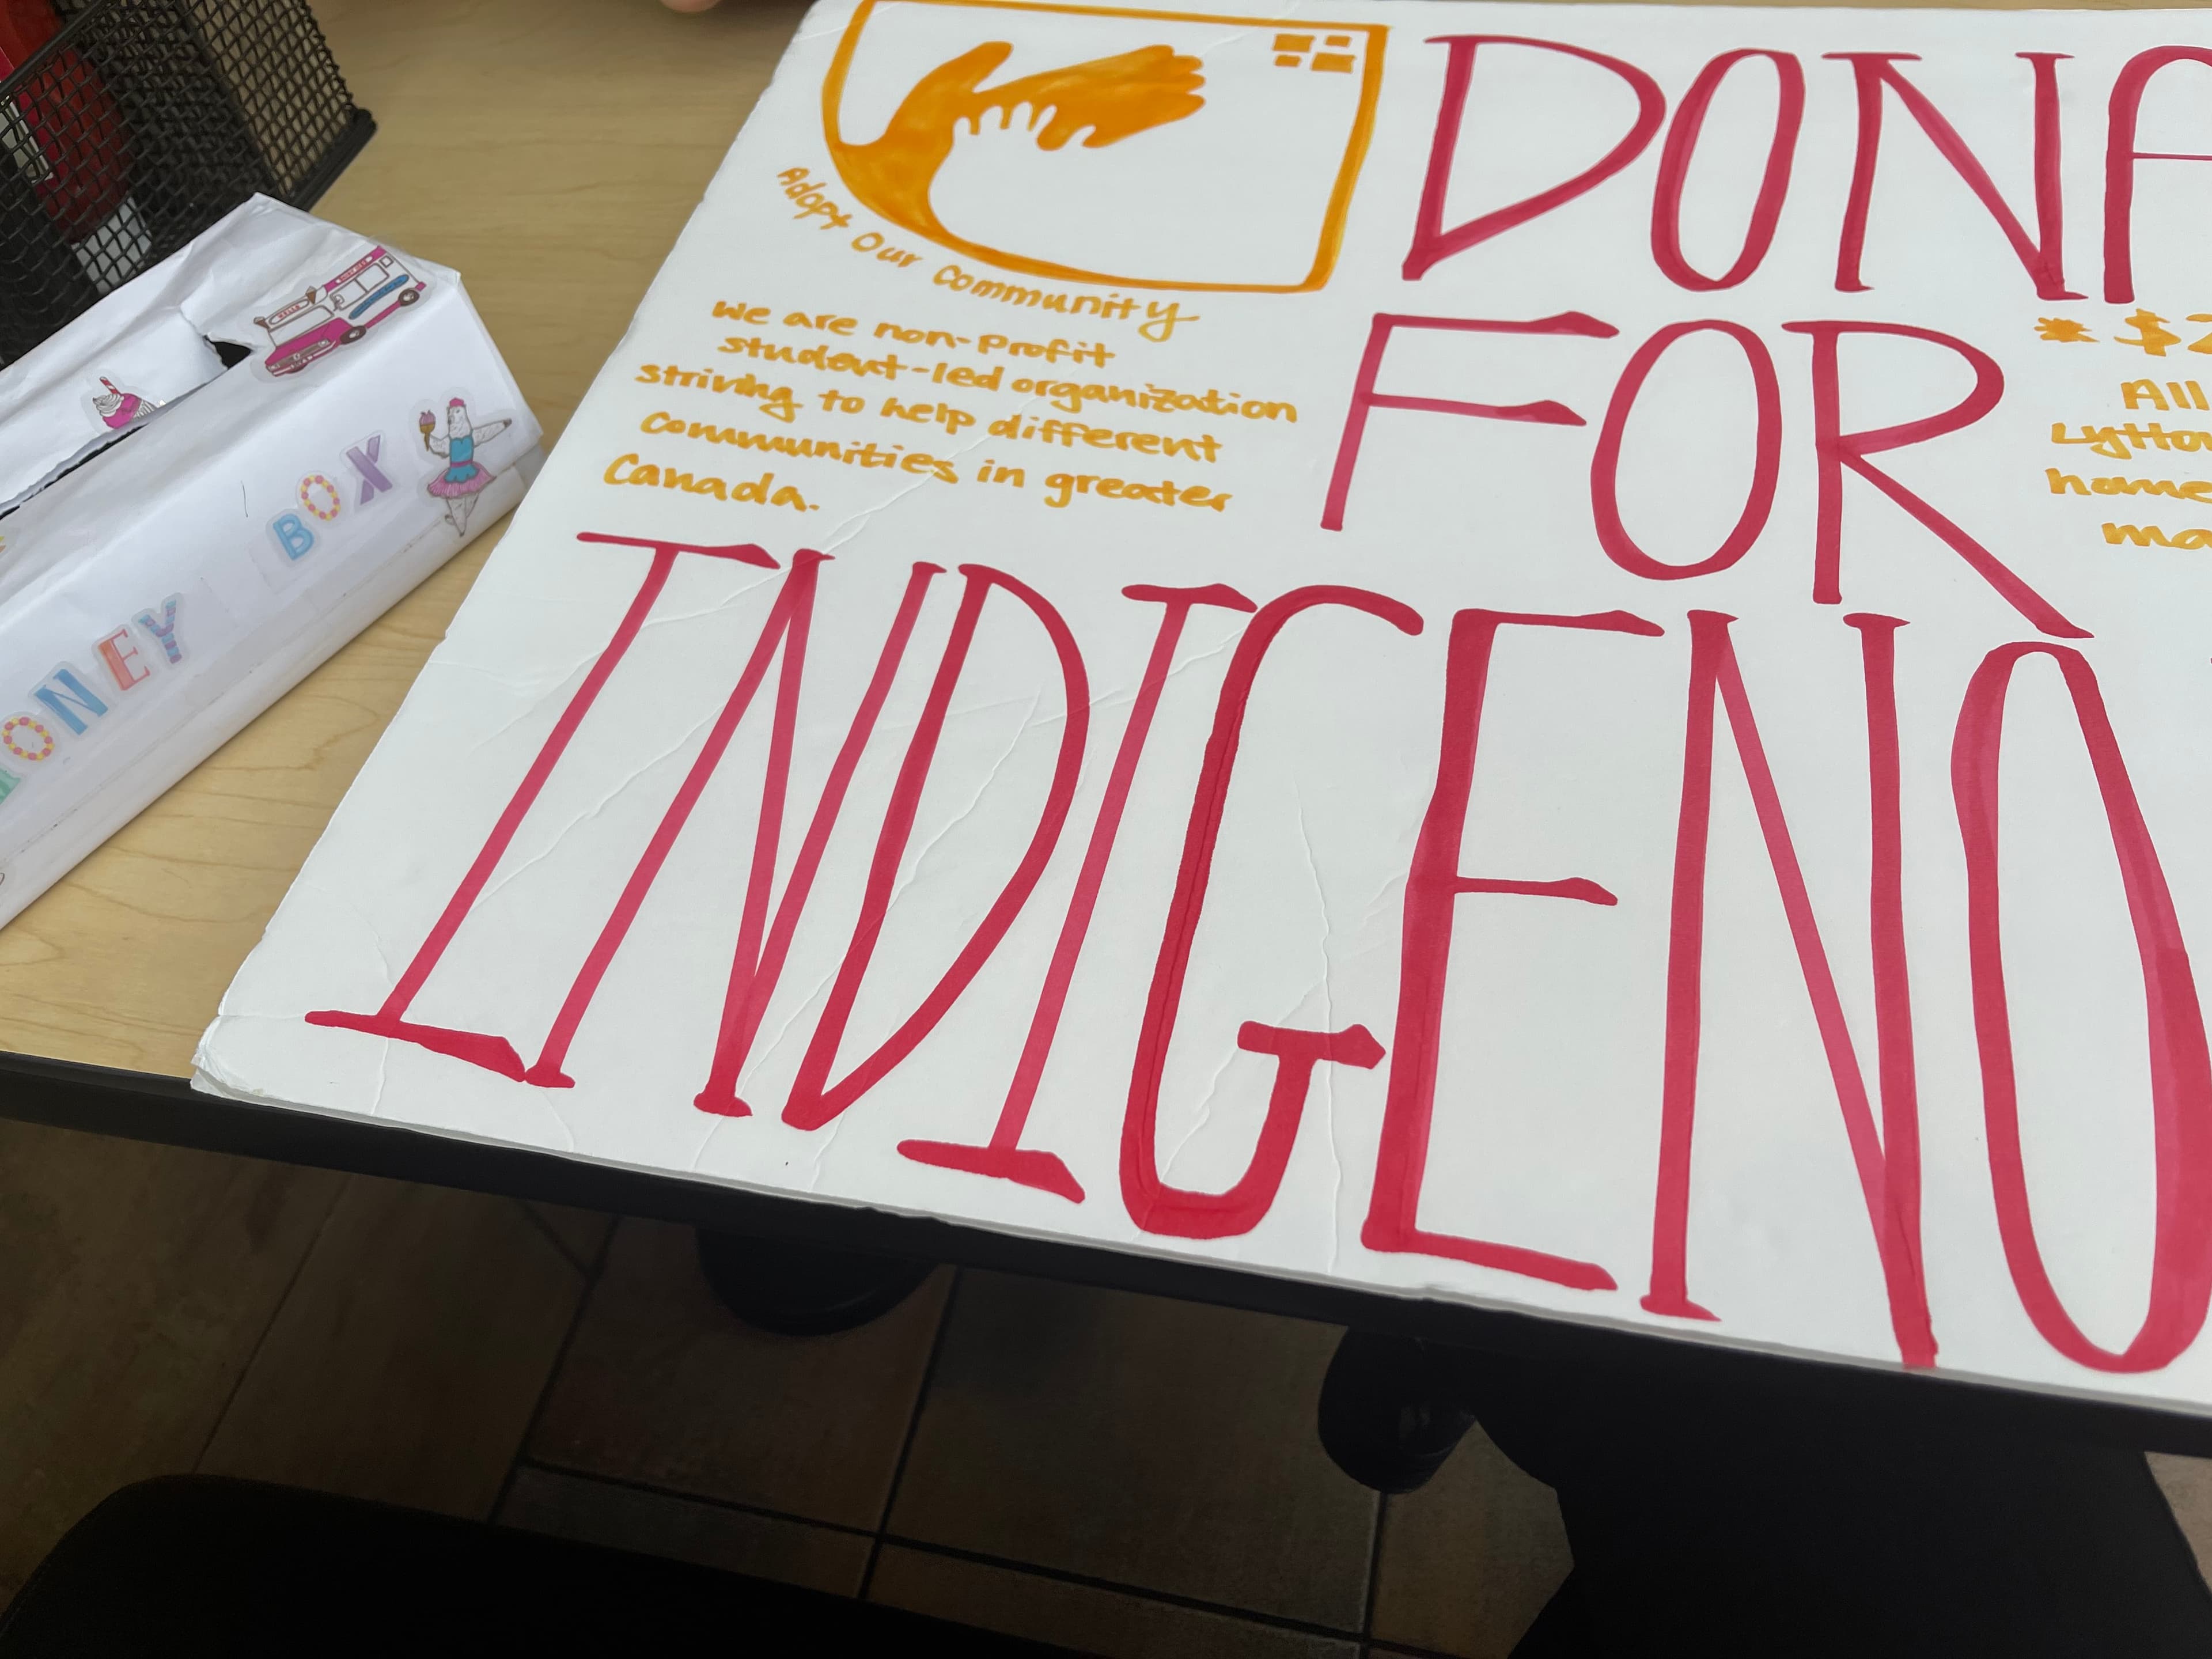 DONA
FOR
INDIGENO
Adopt Our Community
We are non-Profit
student-led organization
striving to help different
Communities in greater
Canada.
* $2
All
Lytto
home
ma
ONEY BOX